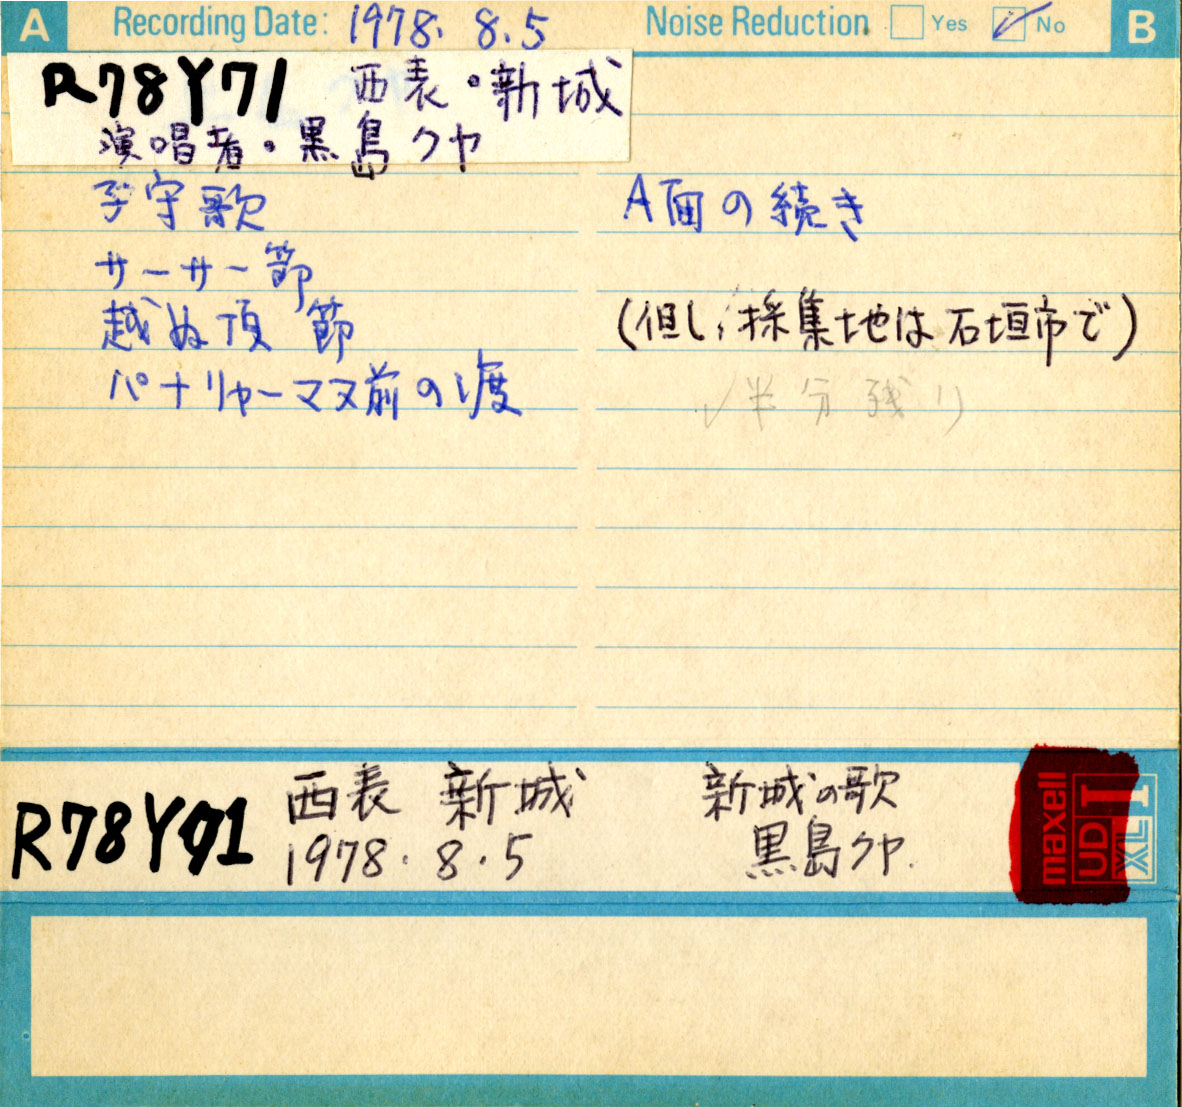 A Recording Date: 1978. 8. 5 Noise Reduction Yes No B
R78Y71 西表・新城
演唱者・黒島クヤ
子守歌
サーサー節
越ぬ頂 節
パナリャーマヌ前の渡
A面の続き
(但し、採集地は石垣市で)
✓半分残り
R78Y71 西表 新城
1978. 8. 5
新城の歌
黒島クヤ.
maxell
UD
XL I